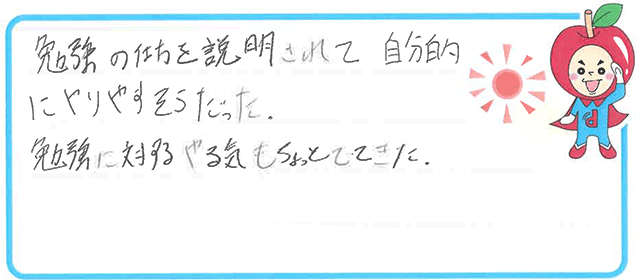 勉強の仕方を説明されて 自分的
にやりやすそうだった.
勉強に対するやる気もちょっとでてきた.